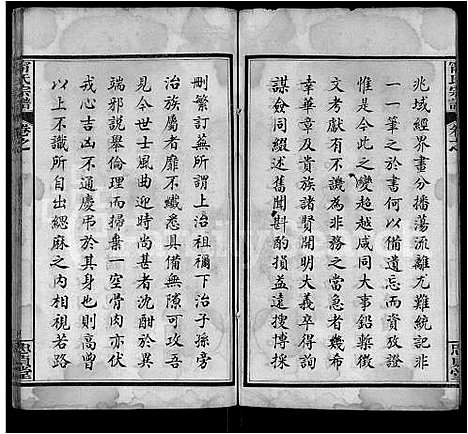 兆域經界畫分播蕩流離尤難統記非
一一筆之於書何以備遺忘而資攷證
惟是今此之變超越咸同大事鉛槧徵
文考獻有不譏為非務之當急者幾希
幸華章及貴族諸賢開明大義卒禀予
謀僉同綴述舊聞斟酌損益遠搜博採
刪繁訂蕪所謂上治祖禰下治子孫旁
治族屬者靡不纖悉具備無隙可指茲
見今世士風曲學時尚甚者沈酣於異
端邪說舉倫理而掃棄一空骨肉亦伏
戎心吉凶不通慶弔於其身也是高曾
以上不識所自出緦麻之內相視若路
甯氏宗譜
卷之